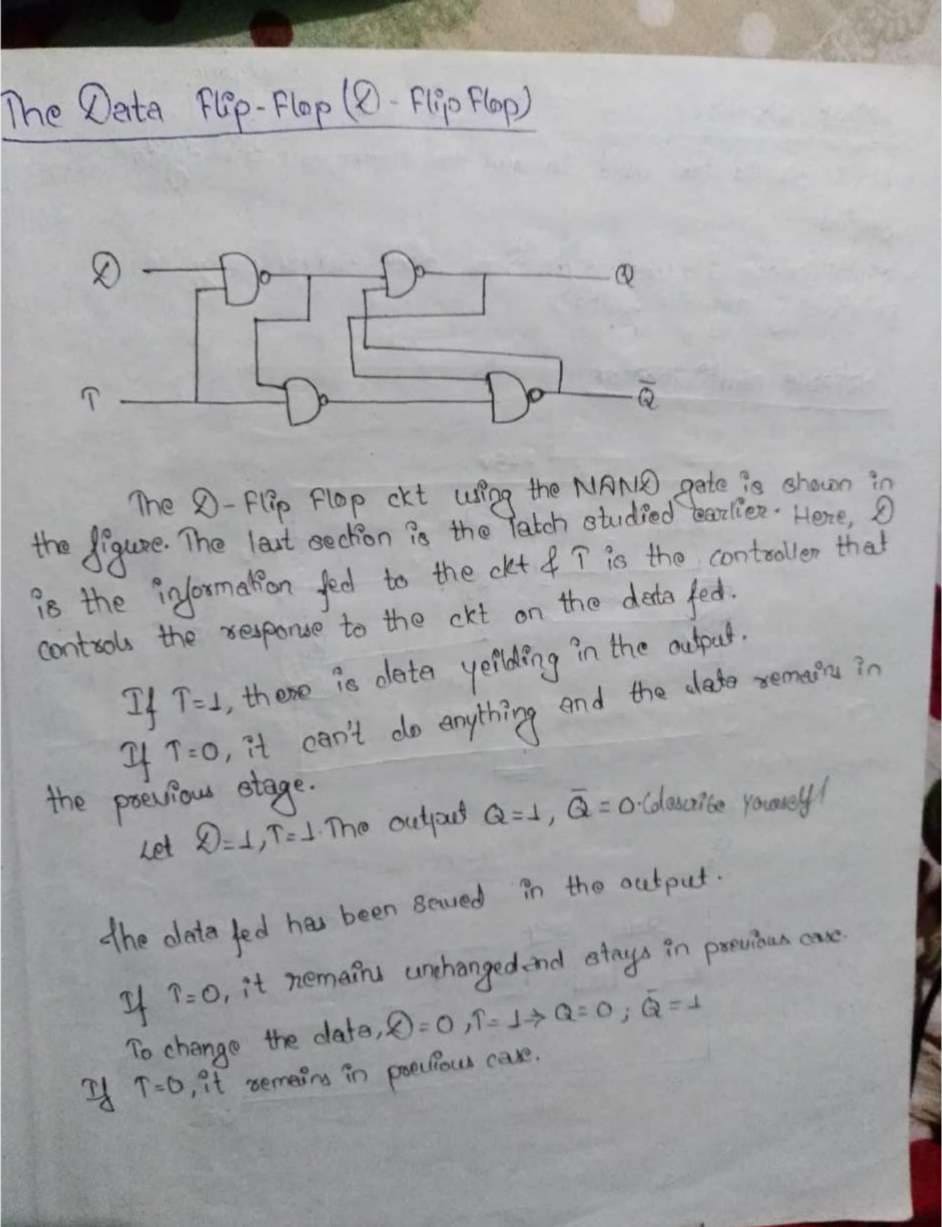 The Data Flip-Flop (D - Flip Flop)
D
Q
T
Q̄
The D-Flip Flop ckt using the NAND gate is shown in
the figure. The last section is the latch studied earlier. Here, D
is the information fed to the ckt & T is the controller that
controls the response to the ckt on the data fed.
If T=1, there is data yeilding in the output.
If T=0, it can't do anything and the data remains in
the previous stage.
Let D=1, T=1. The output Q=1, Q̄=0. (describe yourself)
The data fed has been saved in the output.
If T=0, it remains unchanged and stays in previous case.
To change the data, D=0, T=1 → Q=0 ; Q̄=1
If T=0, it remains in previous case.